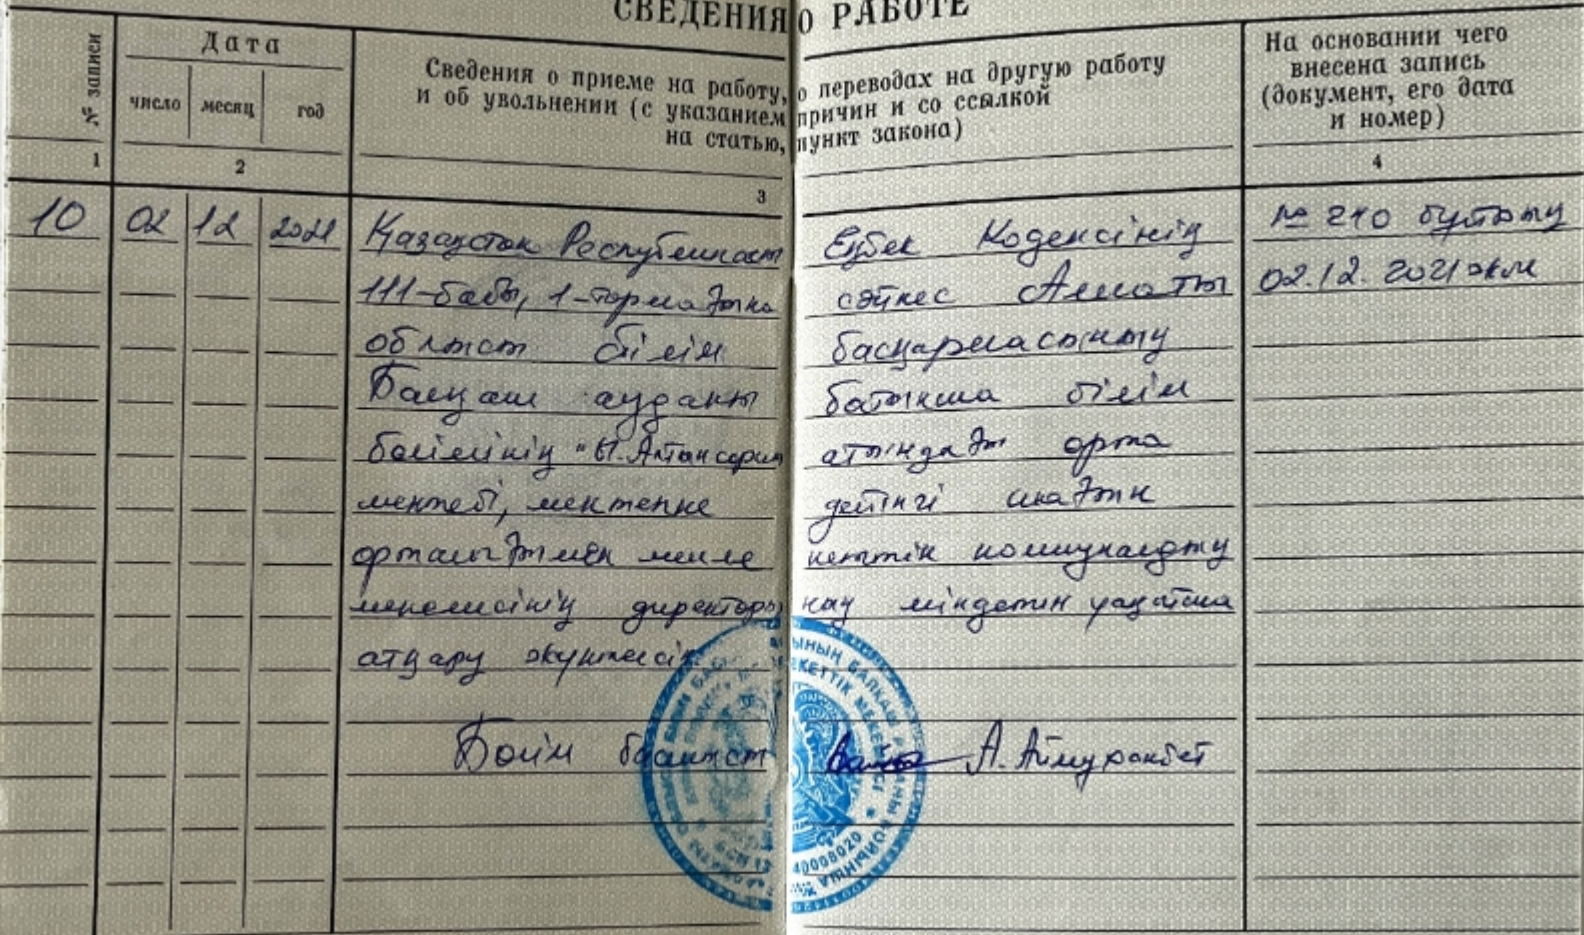 СВЕДЕНИЯ О РАБОТЕ
№ записи
Дата
число месяц год
Сведения о приеме на работу, о переводах на другую работу
и об увольнении (с указанием причин и со ссылкой
на статью, пункт закона)
На основании чего
внесена запись
(документ, его дата
и номер)
1 2 3 4
10 02 12 2021 Қазақстан Республикасы Еңбек Кодексінің № 210 бұйрығы
111-бабы, 1-тармағына сәйкес Алматы 02.12.2021жыл
облысы білім басқармасының
Балқаш ауданы бойынша білім
бөлімінің "Ы.Алтынсарин атындағы орта
мектебі, мектепке дейінгі шағын
орталығымен мемлекеттік коммуналдық
мекемесінің директорының міндетін уақытша
атқару жүктелсін.
Бөлім басшысы А. Аймуханбет